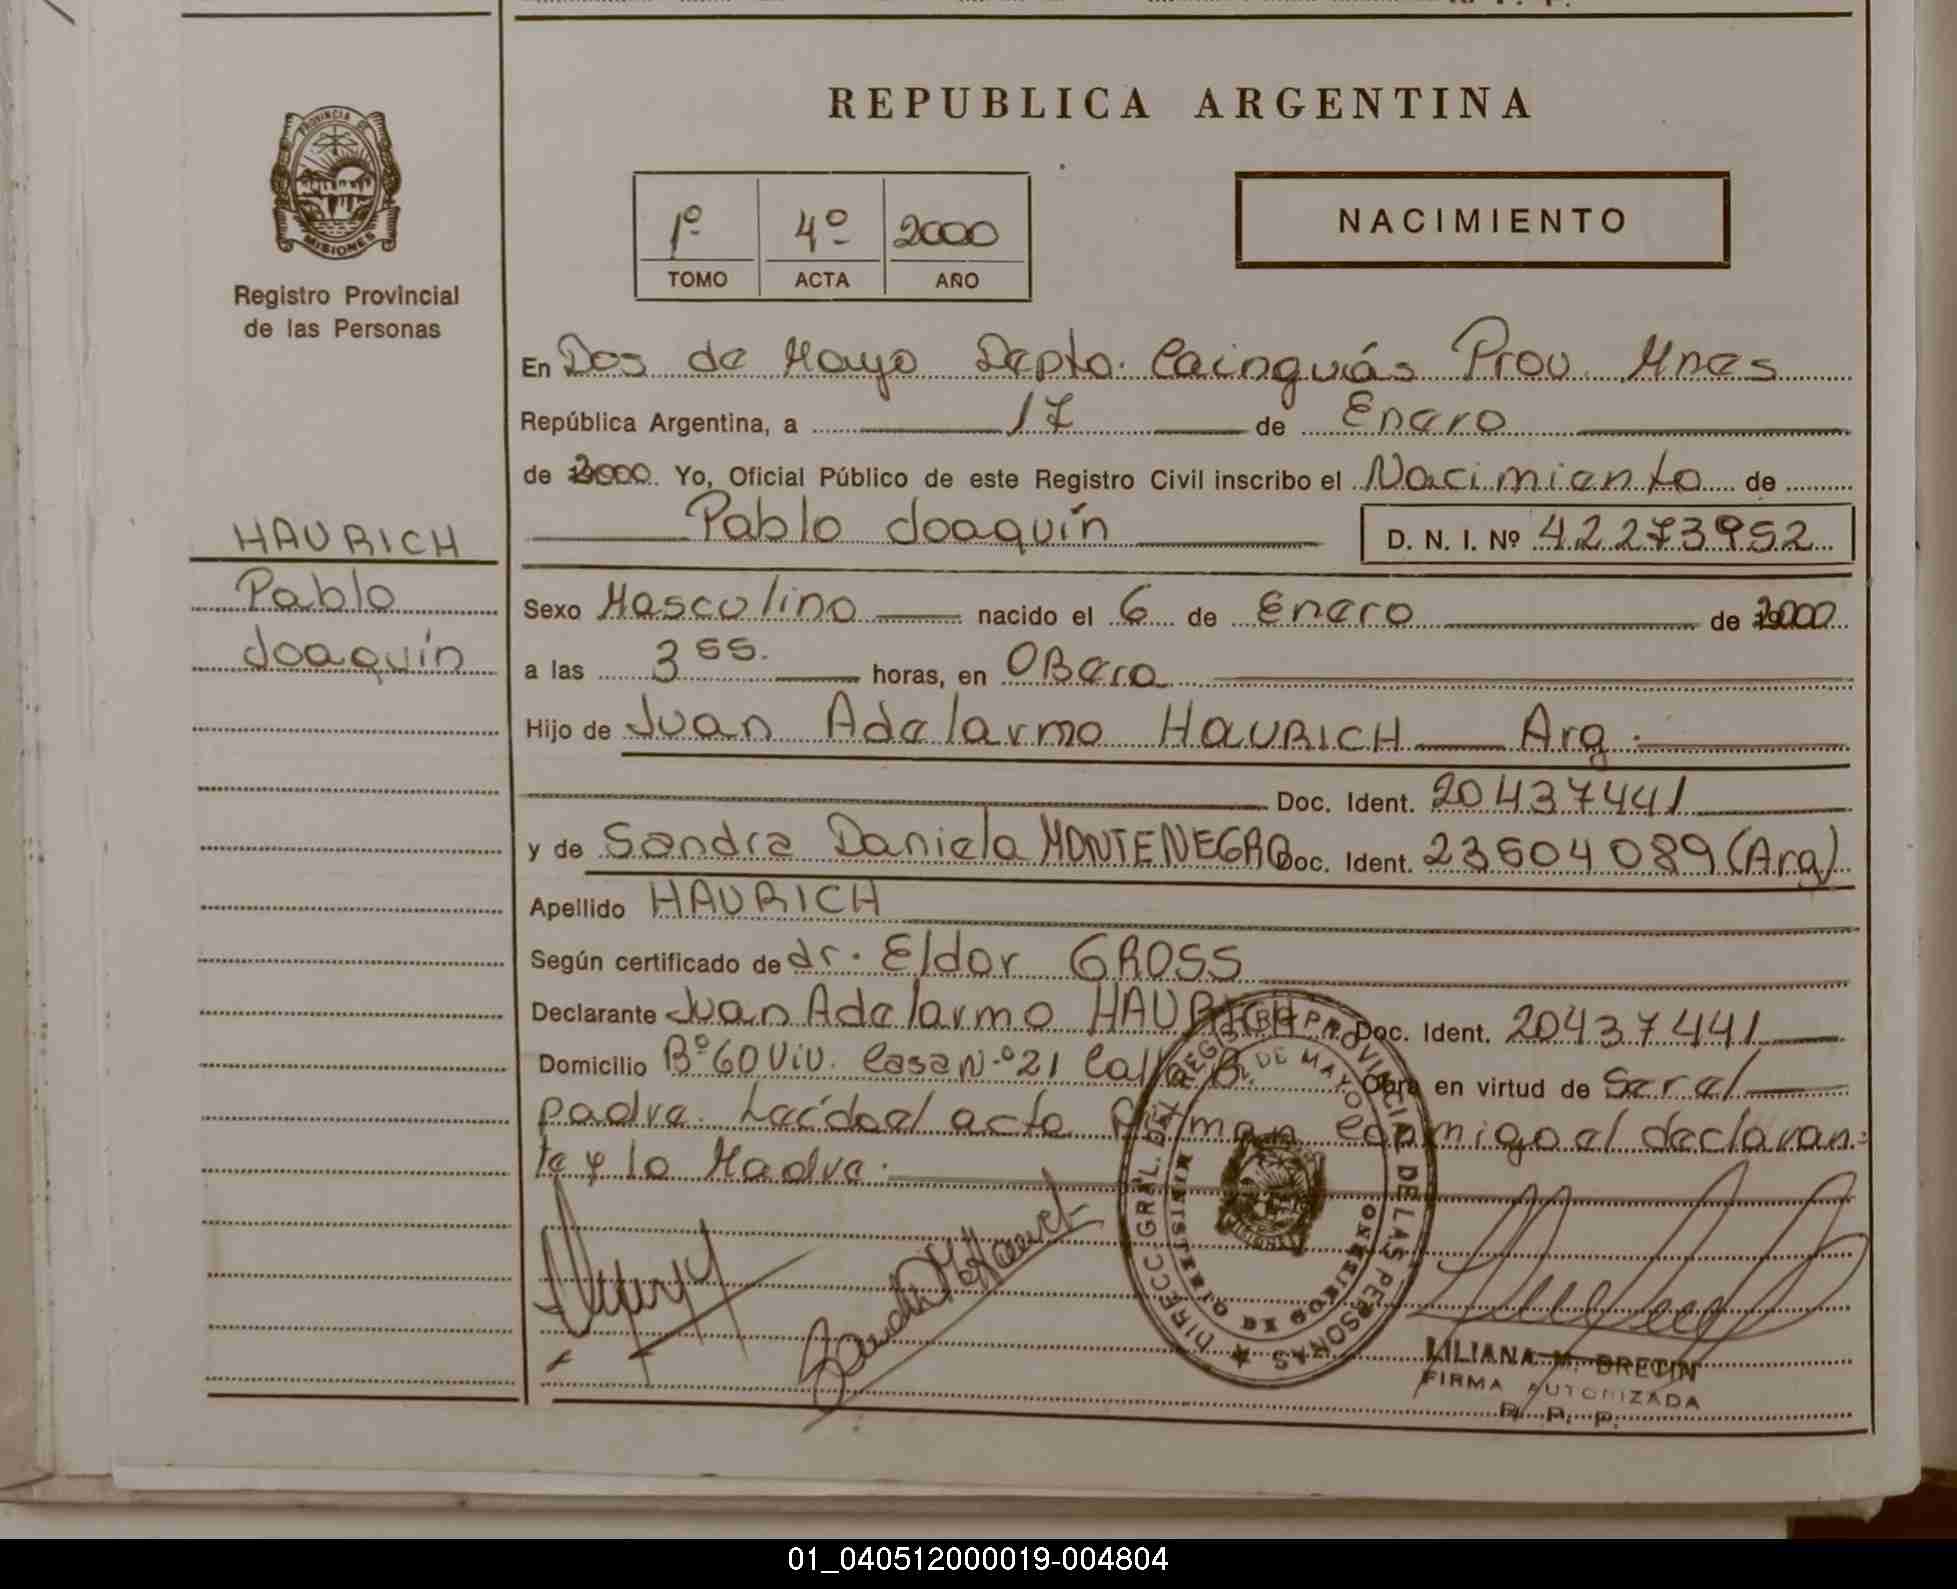 REPUBLICA ARGENTINA
PROVINCIA DE MISIONES
Registro Provincial
de las Personas
1º 4º 2000
TOMO ACTA AÑO
NACIMIENTO
En Dos de Mayo Depto. Cainguás Prov. Mnes
República Argentina, a 17 de Enero
de 2000 Yo, Oficial Público de este Registro Civil inscribo el Nacimiento de
Pablo Joaquín D. N. I. Nº 42273952
HAURICH
Pablo
Joaquín
Sexo Masculino nacido el 6 de Enero de 2000
a las 3 55. horas, en OBera
Hijo de Juan Adelarmo HAURICH Arg.
Doc. Ident. 20437441
y de Sandra Daniela MONTENEGRO Doc. Ident. 23504089 (Arg)
Apellido HAURICH
Según certificado de dr. Eldor GROSS
Declarante Juan Adelarmo HAURICH Doc. Ident. 20437441
Domicilio Bº 60 Viv. Casa Nº 21 Calle B. Obra en virtud de Ser el
padre. Leído el acta firman conmigo el declaran=
te y la Madre.
DIRECC. GRAL. DEL REGISTRO PROVINCIAL DE LAS PERSONAS
2 DE MAYO
MINISTERIO DE GOBIERNO
MISIONES
LILIANA M. BRETIN
FIRMA AUTORIZADA
R. P. P.
01_040512000019-004804